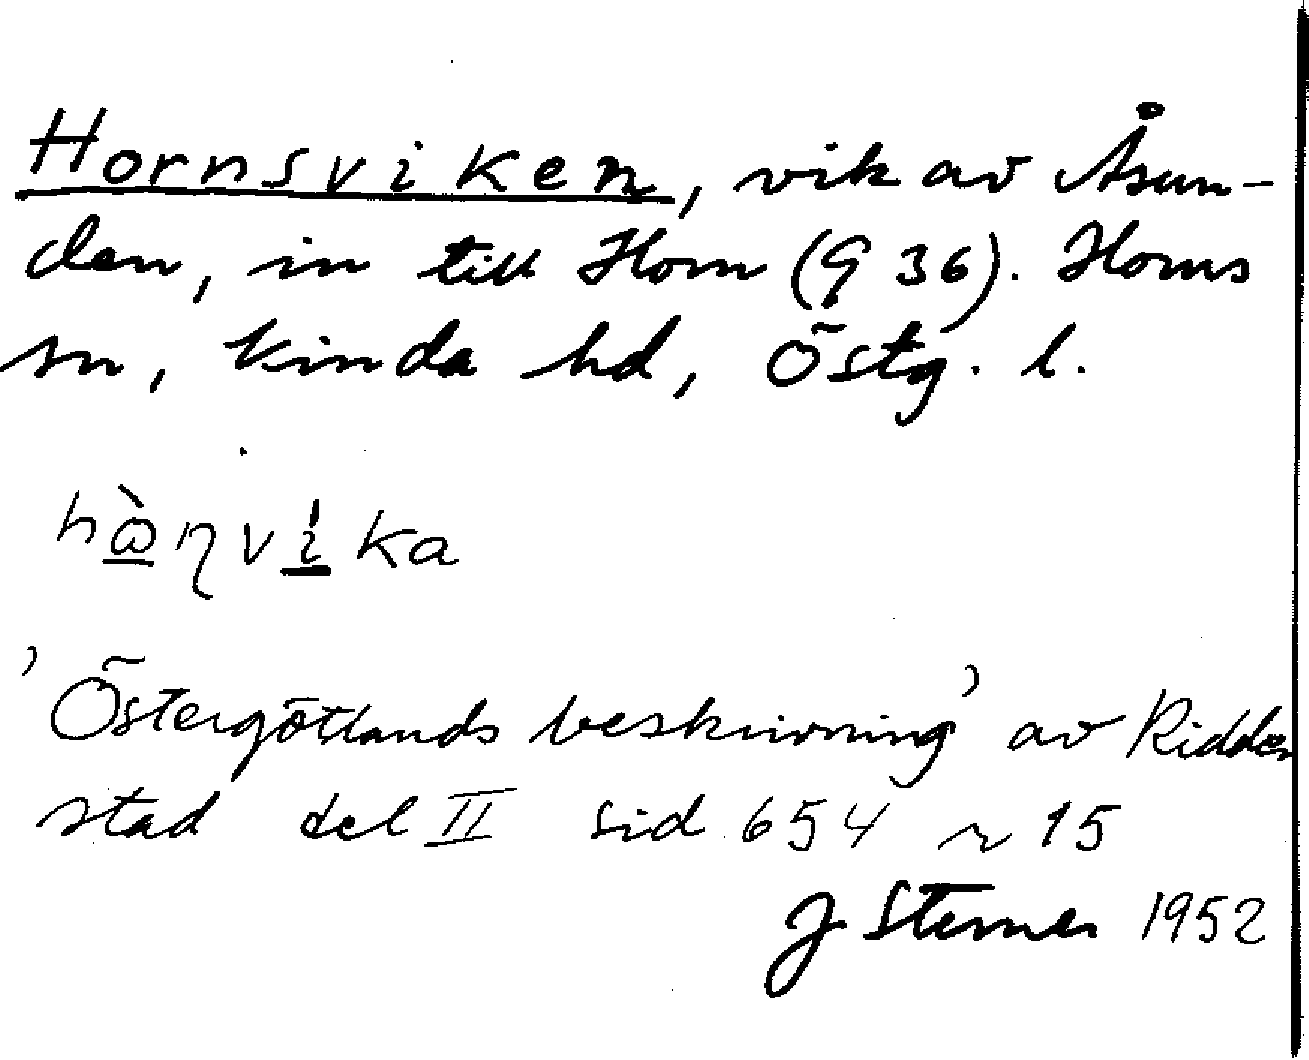 Hornsviken, vik av Åsun-
den, in till Horn (G 36). Horns
sn, Kinda hd, Östg. l.
hὼɳvi̍ka
'Östergötlands beskrivning' av Ridder
stad del II sid 654 r 15
J Sterner 1952